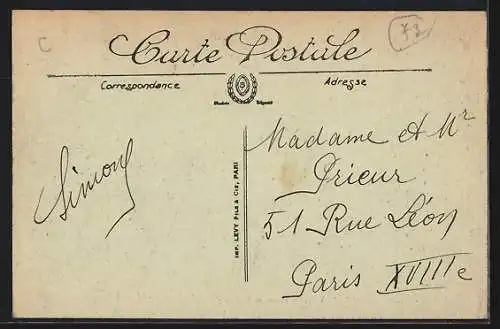 C
72
Carte Postale
Correspondance
Adresse
Modèle Déposé
Simone
IMP. LEVY FILS & Cie, PARI
Madame et Mr
Prieur
51 Rue Léon
Paris XVIIIe